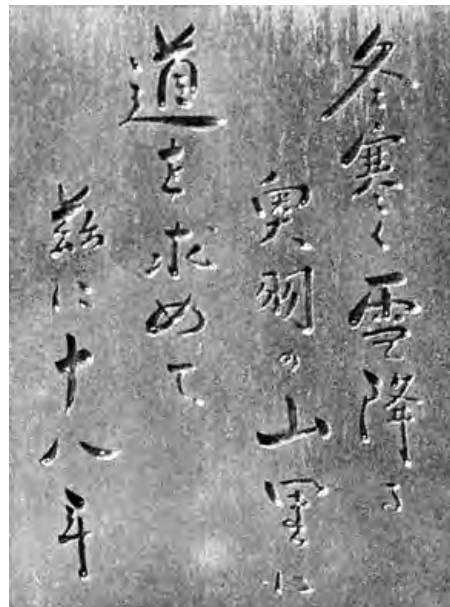 冬寒く雪降る
奥羽の山里に
道を求めて
茲に十八年